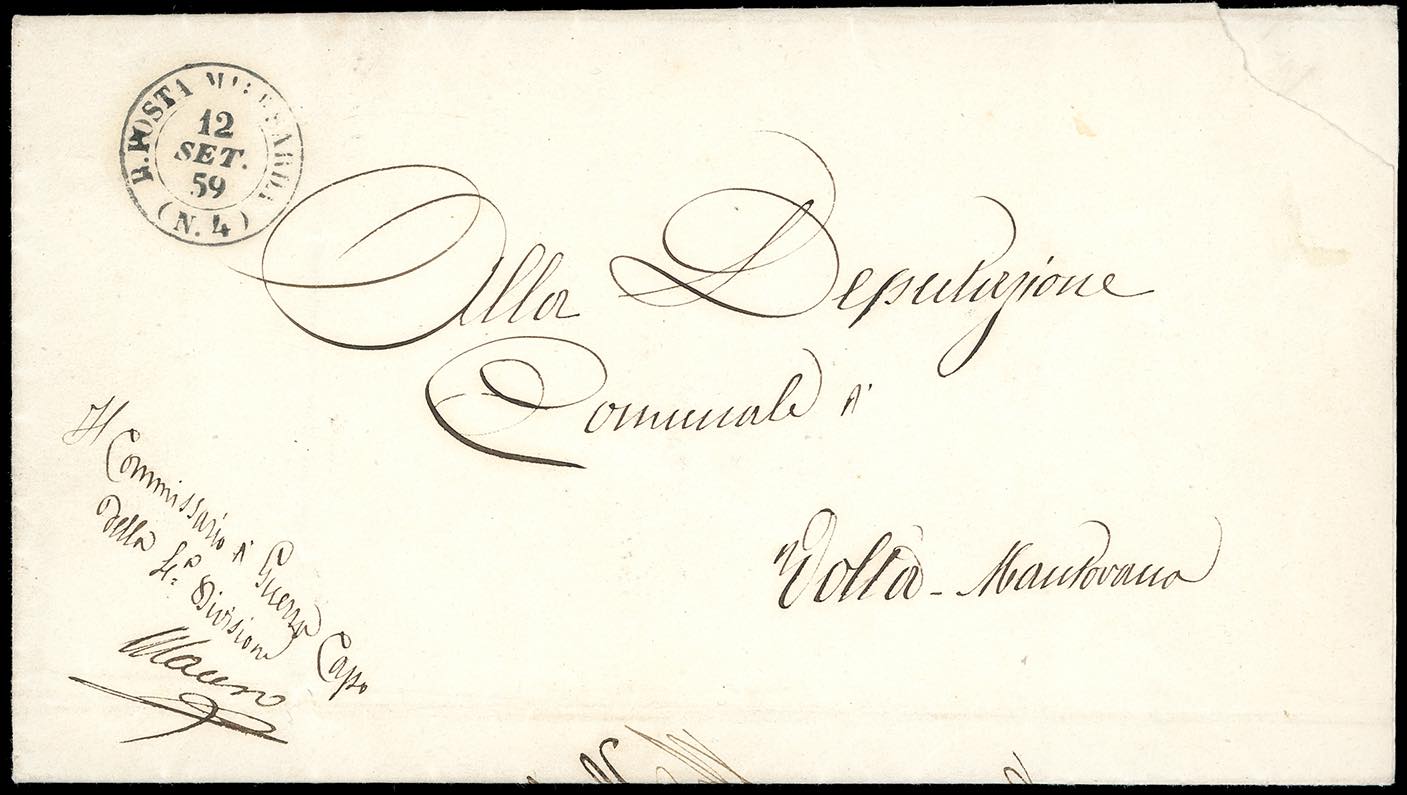 R. POSTA MIL.E SARDA
12
SET.
59
(N. 4)
Alla Deputazione
Comunale A'
Volta - Mantovana
Il Commissario A' Guerra Capo
della 4.a Divisione